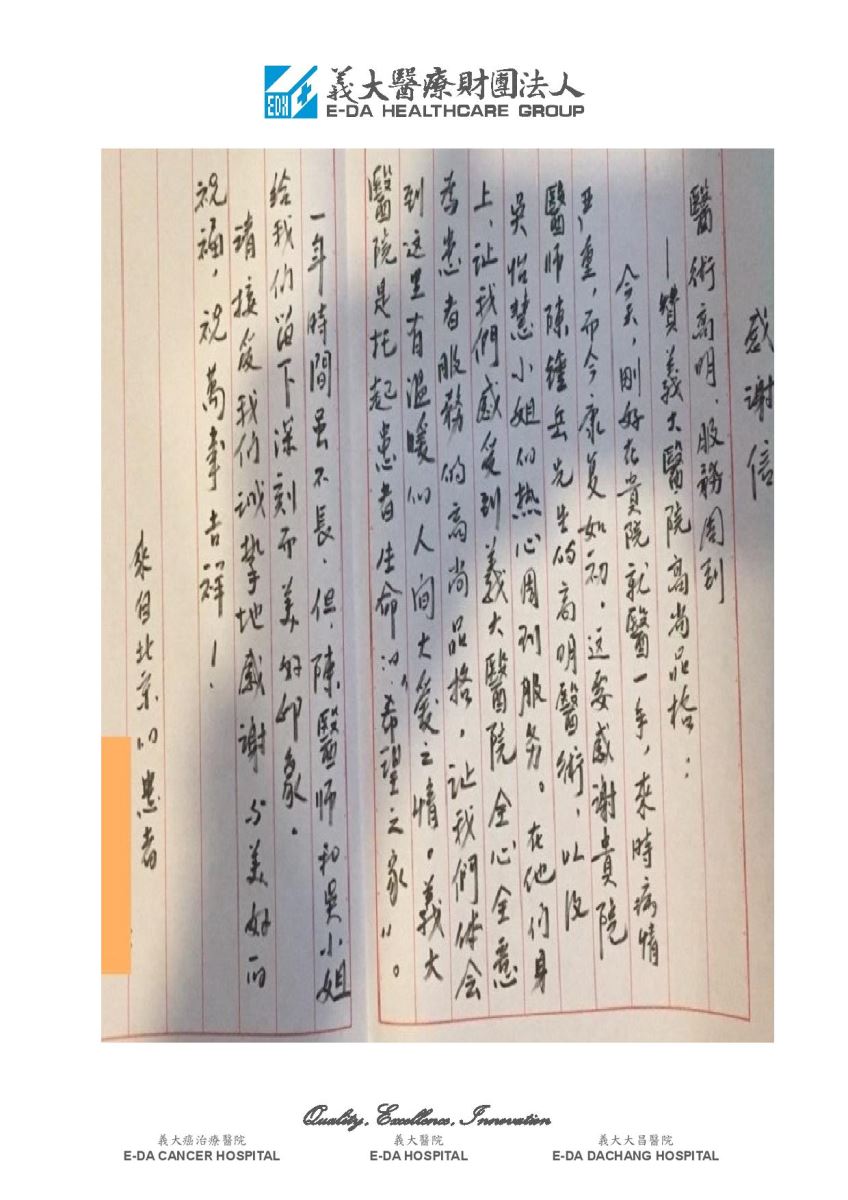 義大醫療財團法人
E-DA HEALTHCARE GROUP
感谢信
醫術高明，服務周到
—赞義大醫院高尚品格：
今天，刚好在貴院就醫一年，来時病情
严重，而今康复如初。这要感谢貴院
醫师陳鍾岳先生的高明醫術，以及
吳怡慧小姐的热心周到服务。在他们身
上，让我們感受到義大醫院全心全意
為患者服務的高尚品格，让我們体会
到这里有温暖的人间大爱之情。義大
醫院是托起患者生命的“希望之家”。
一年時間虽不長，但，陳醫师和吳小姐
给我们留下深刻而美好印象。
请接受我们诚挚地感谢与美好的
祝福，祝萬事吉祥！
来自北京的患者
Quality, Excellence, Innovation
義大癌治療醫院
E-DA CANCER HOSPITAL
義大醫院
E-DA HOSPITAL
義大大昌醫院
E-DA DACHANG HOSPITAL